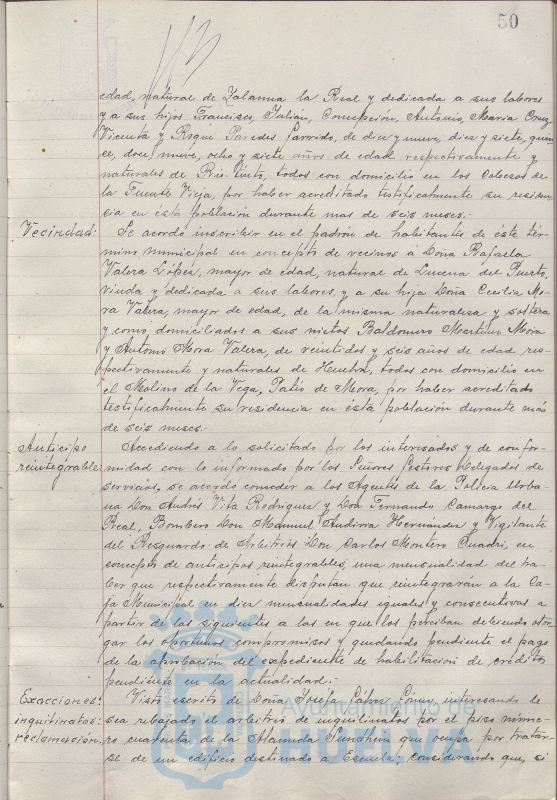 50
edad, natural de Zalamea la Real y dedicada a sus labores
y a sus hijos Francisco, Julián, Concepción, Antonio, María Cruz
Vicenta y Roque Paredes Garrido, de diez y nueve, diez y siete, quin
ce, doce, nueve, ocho y siete años de edad respectivamente y
naturales de Rio Tinto, todos con domicilio en los Cabezos de
la Fuente Vieja, por haber acreditado testificalmente su residen
cia en esta población durante mas de seis meses.-
Vecindad:
Se acordó inscribir en el padrón de habitantes de este tér-
mino municipal en concepto de vecinos á Doña Rafaela
Valera López, mayor de edad, natural de Lucena del Puerto,
viuda y dedicada a sus labores, y a su hija Doña Cecilia Mo-
ra Valera, mayor de edad, de la misma naturaleza y soltera
y como domiciliados a sus nietos Baldomero Martín Mora
y Antonio Mora Valera, de veintidos y seis años de edad res-
pectivamente y naturales de Huelva, todos con domicilio en
el Molino de la Vega, Patio de Mora, por haber acreditado
testificalmente su residencia en ésta población durante más
de seis meses.
Anticipo
reintegrable
Accediendo a lo solicitado por los interesados y de confor-
midad con lo informado por los Señores Gestores Delegados de
servicios, se acordó conceder a los Agentes de la Policía Urba-
na Don Andrés Vita Rodriguez y Don Fernando Camargo del
Real, Bombero Don Manuel Hernández y Vigilante
del Resguardo de Arbitrios Don Carlos Montero Cuadri, en
concepto de anticipos reintegrables, una mensualidad del ha-
ber que respectivamente disfrutan que reintegrarán a la Ca-
ja Municipal en diez mensualidades iguales y consecutivas a
partir de las siguientes a las en que los perciban debiendo otor
gar los oportunos compromisos y quedando pendiente el pago
de la aprobación del expediente de habilitación de créditos
pendiente en la actualidad.
Exacciones:
inquilinatos:
reclamación.
Visto escrito de Doña Josefa López Gómez, interesando le
sea rebajado el arbitrio de inquilinatos por el piso núme-
ro cuarenta de la Alameda Sundheim que ocupa por tratar-
se de un edificio destinado a Escuela; considerando que, si
Ayuntamiento de
HUELVA